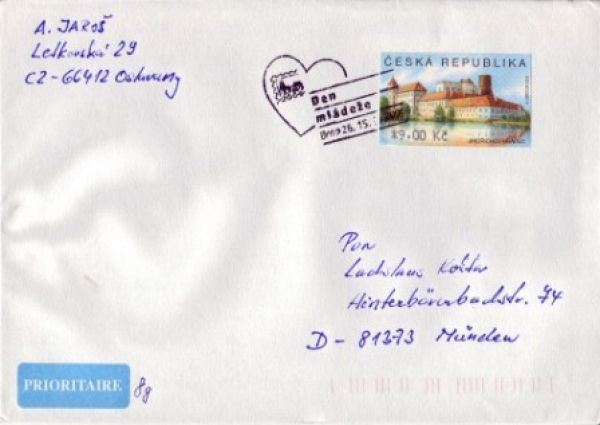 A. JAROŠ
Letkovská 29
CZ-66412 Oslavany
ČESKÁ REPUBLIKA
*9.00 Kč
JINDŘICHŮV HRADEC
Den
mládeže
Brno 26, 15.
Pan
Ladislaus Košta
Hinterbärenbadstr. 74
D - 81373 München
PRIORITAIRE
8g